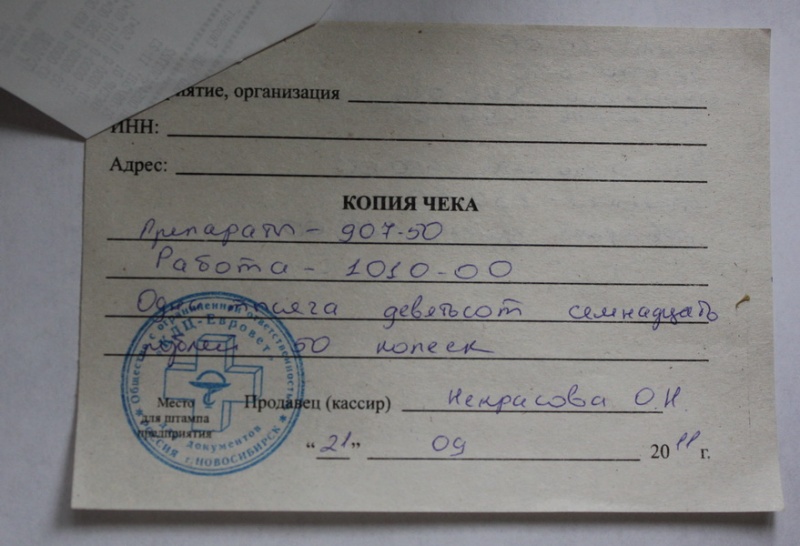 ятие, организация
ИНН:
Адрес:
КОПИЯ ЧЕКА
Препараты - 907-50
Работа - 1010-00
Одна тысяча девятьсот семнадцать
рублей 50 копеек
Общество с ограниченной ответственностью
"КДЦ-Евровет"
Для документов
РОССИЯ г. НОВОСИБИРСК
Место
для штампа
предприятия
Продавец (кассир) Некрасова О.Н
"21" 09 2011 г.